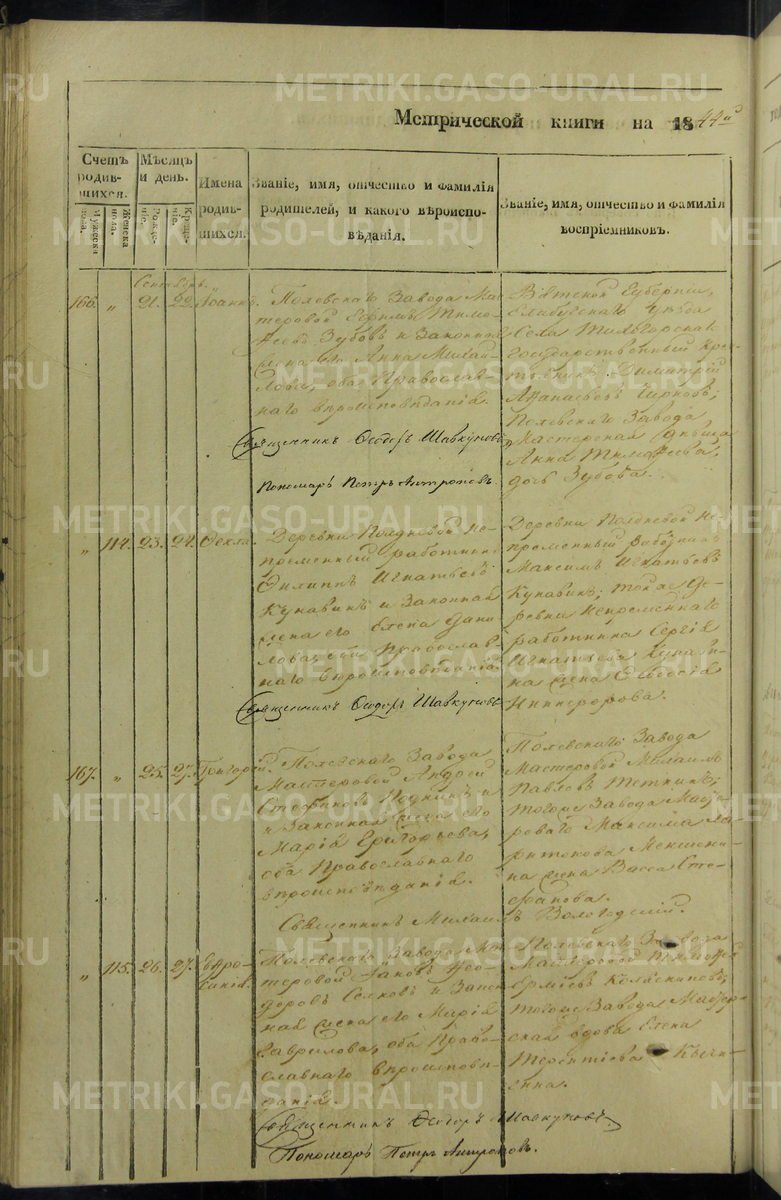 Метрической книги на 1844й
Счетъ родив-шихся.
Мужеска пола.
Женска пола.
Мѣсяцъ и день.
Рожде-нія.
Креще-нія.
Имена родив-шихся.
Званіе, имя, отчество и фамилія
родителей, и какого вѣроиспо-
вѣданія.
Званіе, имя, отчество и фамилія
воспріемниковъ.
Сентябрь.
166. „ 21. 22. Іоаннъ.
Полевскаго Завода Мас-
теровой Ефимъ Тимо-
ѳеевъ Зубовъ и Законная
жена его Анна Михай-
лова, оба Православ-
наго вѣроисповѣданія.
Священникъ Ѳеодоръ Шавкуновъ
Пономарь Петръ Антроповъ.
Вятской Губерніи,
Елабугскаго уѣзда
Села
государственный крес-
тьянинъ Димитрій
Аѳанасьевъ
Полевскаго Завода
мастерская дѣвица
Анна Тимоѳеева,
дочь Зубова.
„ 114. 23. 24. Ѳекла.
Деревни Полдневой Не-
премѣнный работникъ
Филиппъ Игнатьевъ
Кунавинъ и Законная
жена его Елена Дани-
лова, оба Православ-
наго вѣроисповѣданія.
Священникъ Ѳеодоръ Шавкуновъ
Деревни Полдневой Не-
премѣнный работникъ
Максимъ Игнатьевъ
Кунавинъ; той же де-
ревни Непремѣннаго
работника Сергія
Игнатьева Кунави-
на жена
Никифорова.
167. „ 25. 27. Григорій.
Полевскаго Завода
Мастеровой Андрей
Стефановъ
и Законная жена его
Марія Григорьева,
оба Православнаго
вѣроисповѣданія.
Священникъ Михаилъ Вологодскій.
Полевскаго Завода
Мастеровой Михаилъ
Павловъ
тогоже Завода Масте-
роваго Максима Ха-
ритонова
на жена Васса Сте-
фанова.
„ 115. 26. 27. Евфро-
санія.
Полевскаго Завода Мас-
теровой Іаковъ Ѳео-
доровъ и Закон-
ная жена его Марія
Гаврилова, оба Право-
славнаго вѣроисповѣ-
данія.
Священникъ Ѳеодоръ Шавкуновъ.
Пономарь Петръ Антроповъ.
Полевскаго Завода
Мастеровой
тогоже Завода Масте-
рская вдова Елена
Терентіева
METRIKI.GASO-URAL.RU